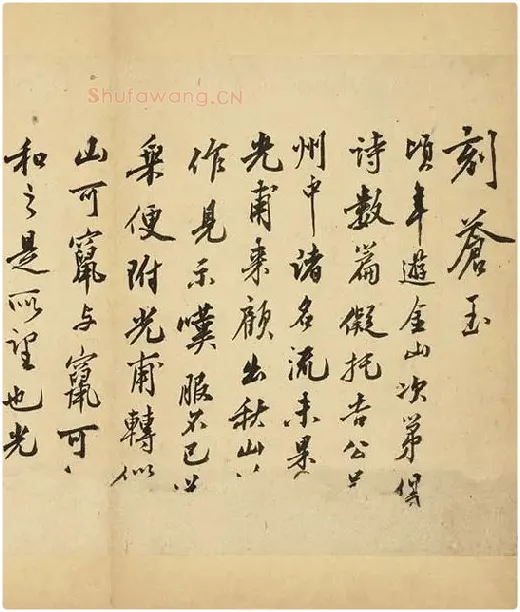 Shufawang.CN
刻蒼玉
頃年遊金山次第得
詩數篇儗托香公
州中諸名流未果
光甫来顧出秋山
作見示嘆服不已
乘便附光甫轉似
山可竄与竄可
和之是所望也光